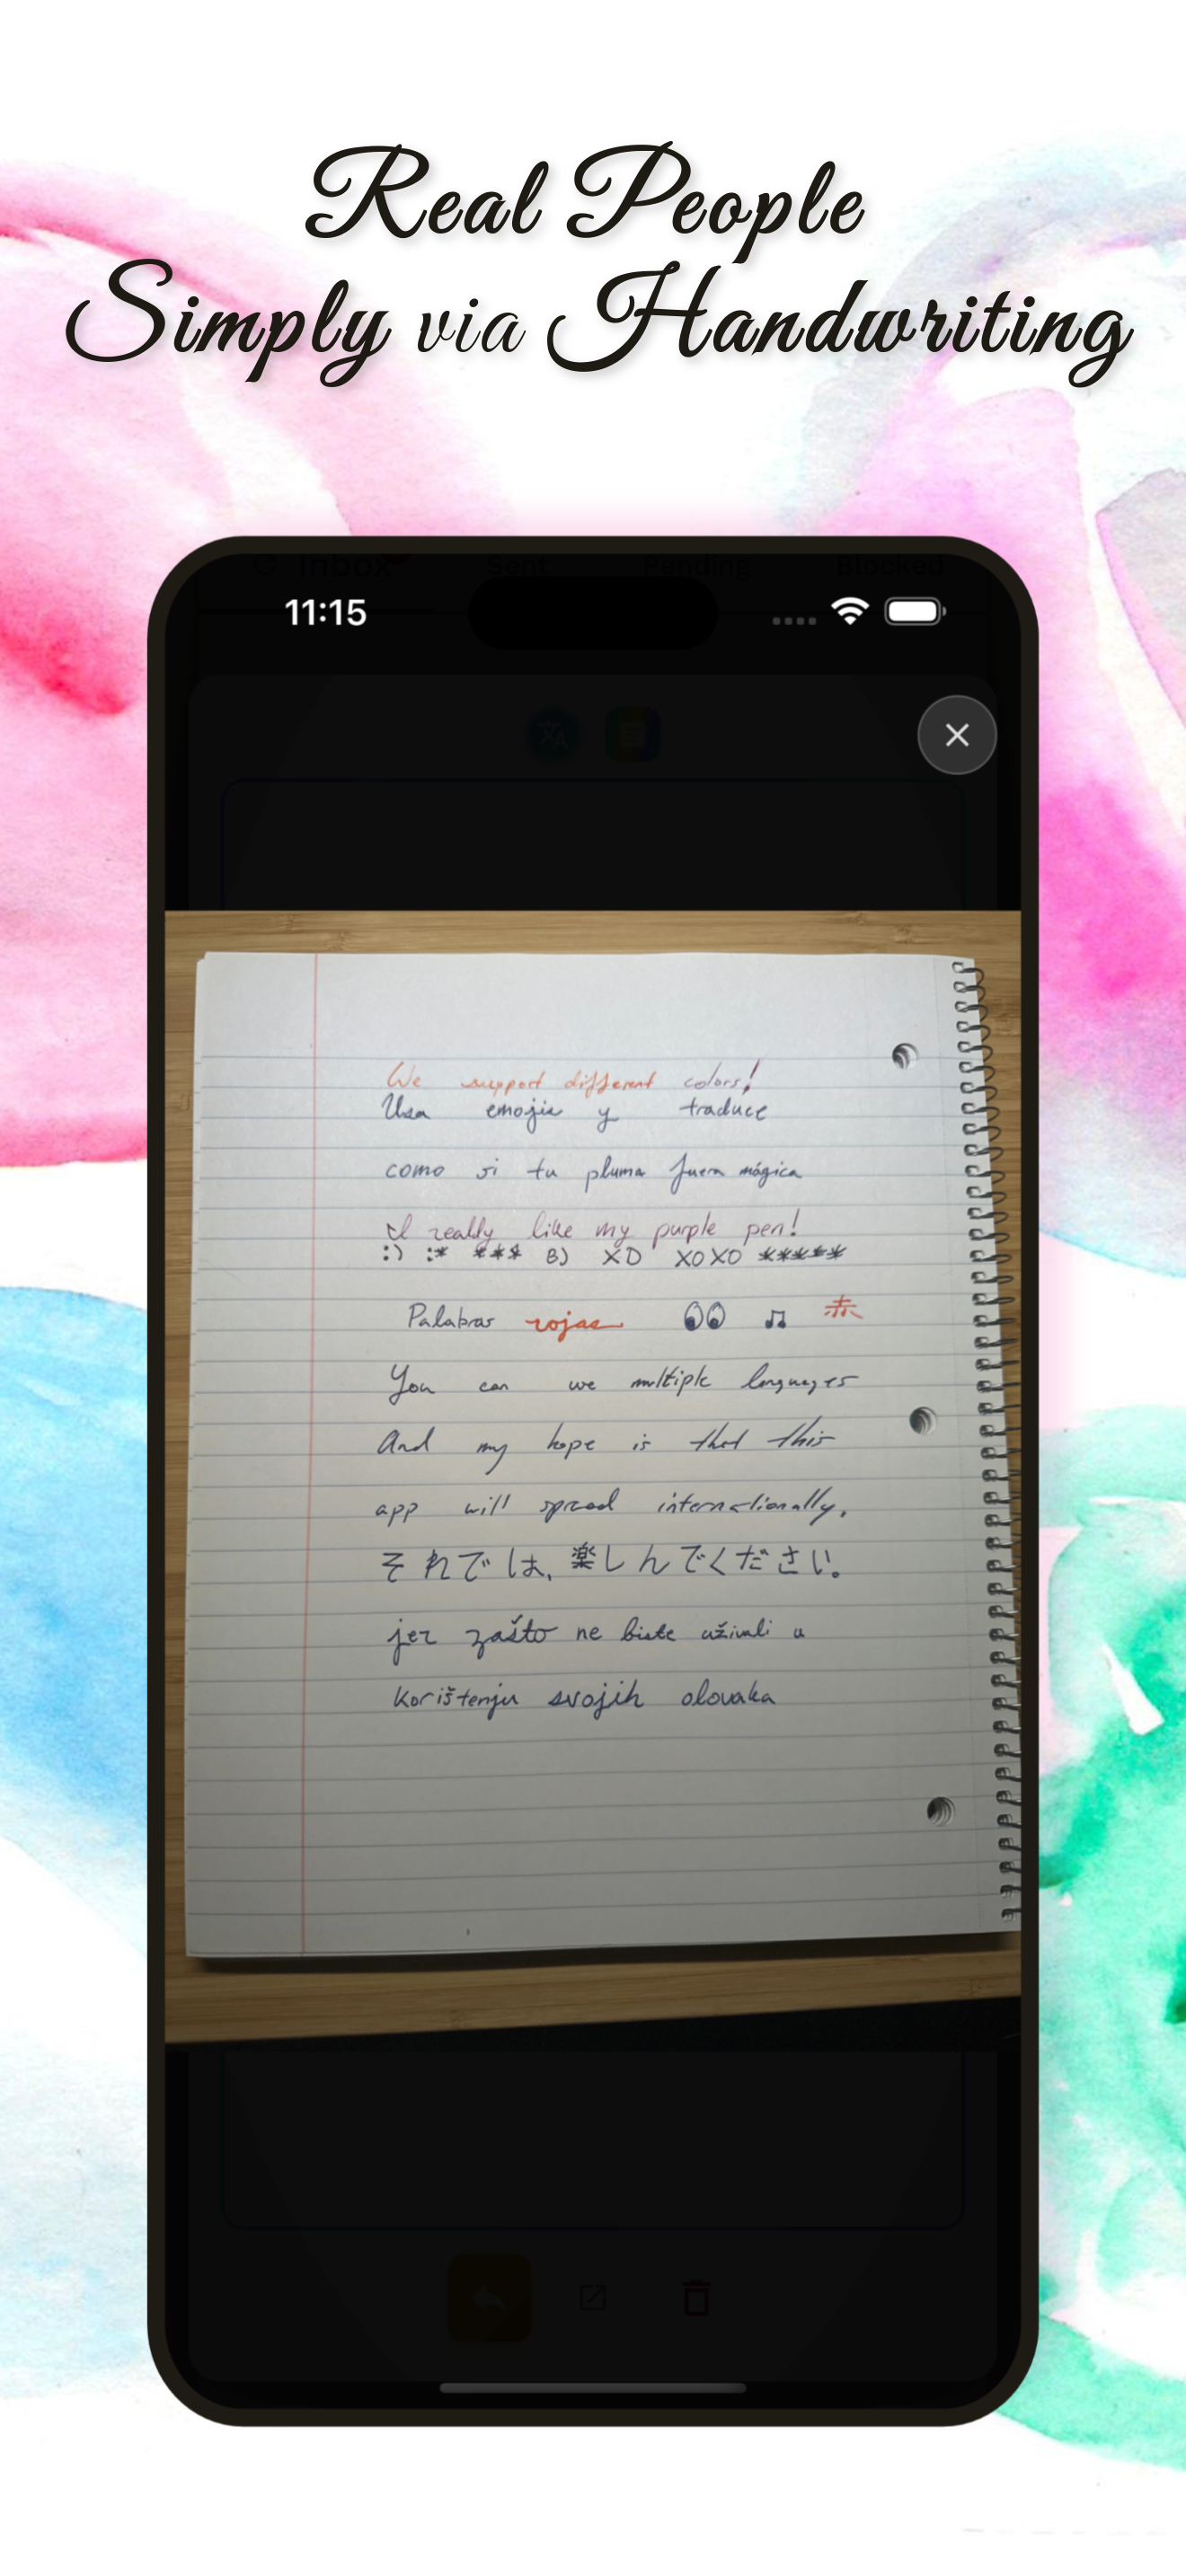 Real People
Simply via Handwriting
Inbox Sent Pending Blocked
11:15
We support different colors!
Usa emojis y traduce
como si tu pluma fuera mágica
I really like my purple pen!
:) :* *** B) XD XOXO *****
Palabras rojas 👀 ♫ 赤
You can use multiple languages
And my hope is that this
app will spread internationally.
それでは、楽しんでください。
jer zašto ne biste uživali u
korištenju svojih olovaka